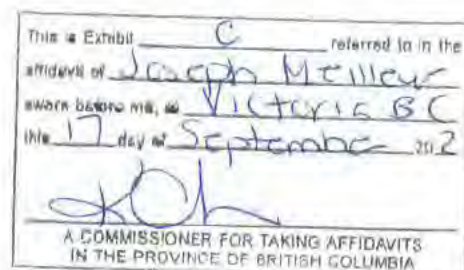 This is Exhibit C referred to in the
affidavit of Joseph Meilleur
sworn before me, at Victoria BC
this 17 day of September 2012
A COMMISSIONER FOR TAKING AFFIDAVITS
IN THE PROVINCE OF BRITISH COLUMBIA